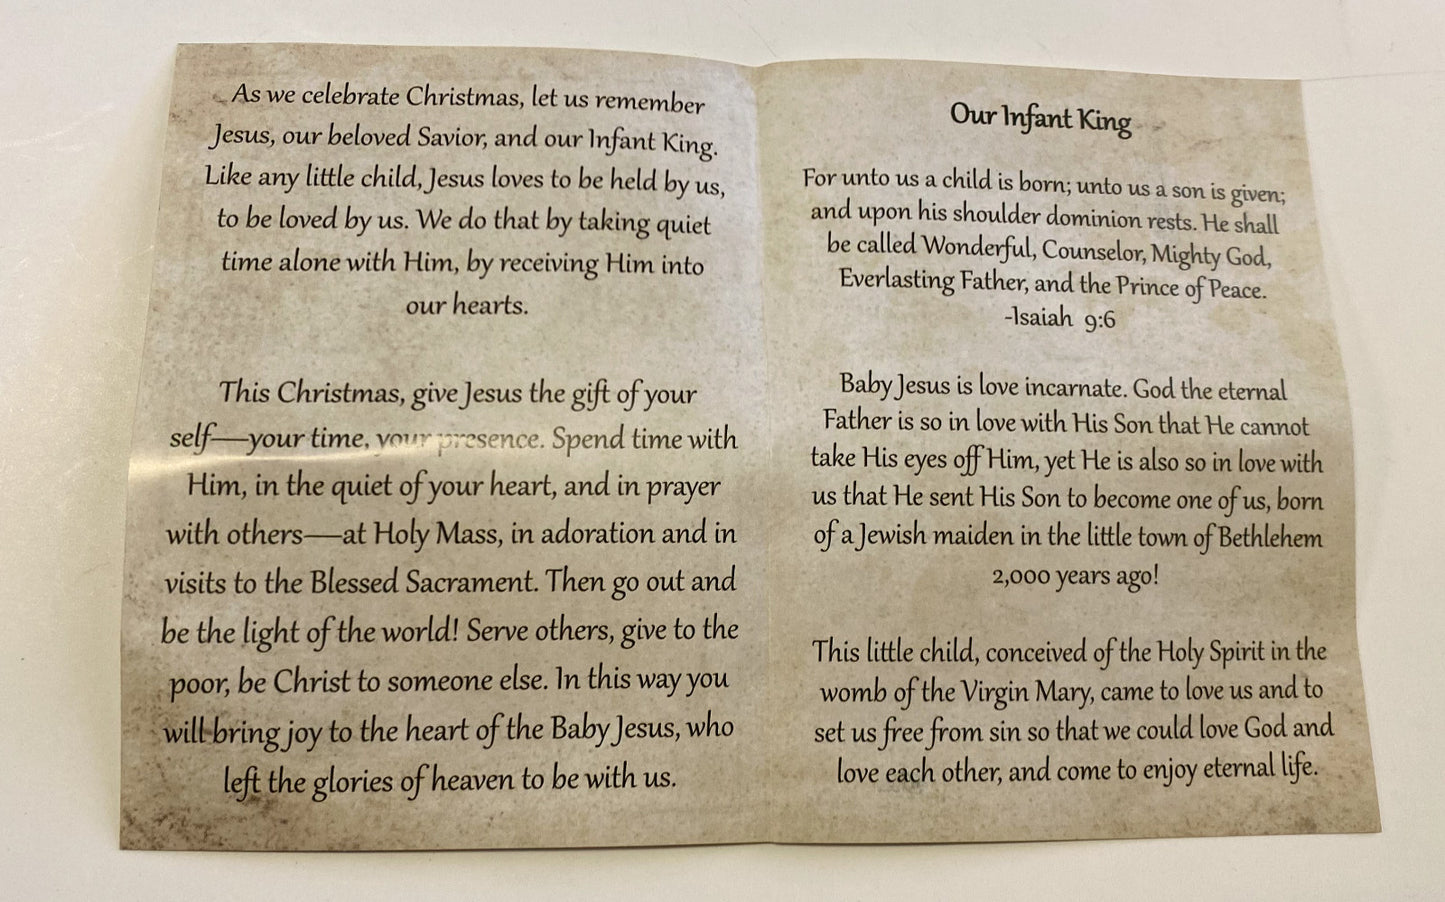 As we celebrate Christmas, let us remember
Jesus, our beloved Savior, and our Infant King.
Like any little child, Jesus loves to be held by us,
to be loved by us. We do that by taking quiet
time alone with Him, by receiving Him into
our hearts.
This Christmas, give Jesus the gift of your
self—your time, your presence. Spend time with
Him, in the quiet of your heart, and in prayer
with others—at Holy Mass, in adoration and in
visits to the Blessed Sacrament. Then go out and
be the light of the world! Serve others, give to the
poor, be Christ to someone else. In this way you
will bring joy to the heart of the Baby Jesus, who
left the glories of heaven to be with us.
Our Infant King
For unto us a child is born; unto us a son is given;
and upon his shoulder dominion rests. He shall
be called Wonderful, Counselor, Mighty God,
Everlasting Father, and the Prince of Peace.
-Isaiah 9:6
Baby Jesus is love incarnate. God the eternal
Father is so in love with His Son that He cannot
take His eyes off Him, yet He is also so in love with
us that He sent His Son to become one of us, born
of a Jewish maiden in the little town of Bethlehem
2,000 years ago!
This little child, conceived of the Holy Spirit in the
womb of the Virgin Mary, came to love us and to
set us free from sin so that we could love God and
love each other, and come to enjoy eternal life.